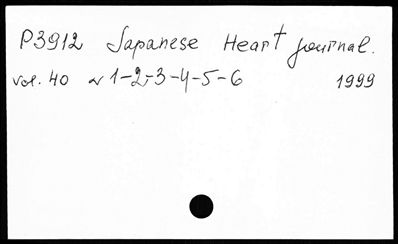 P3912 Japanese Heart journal.
vol. 40 N 1-2-3-4-5-6 1999